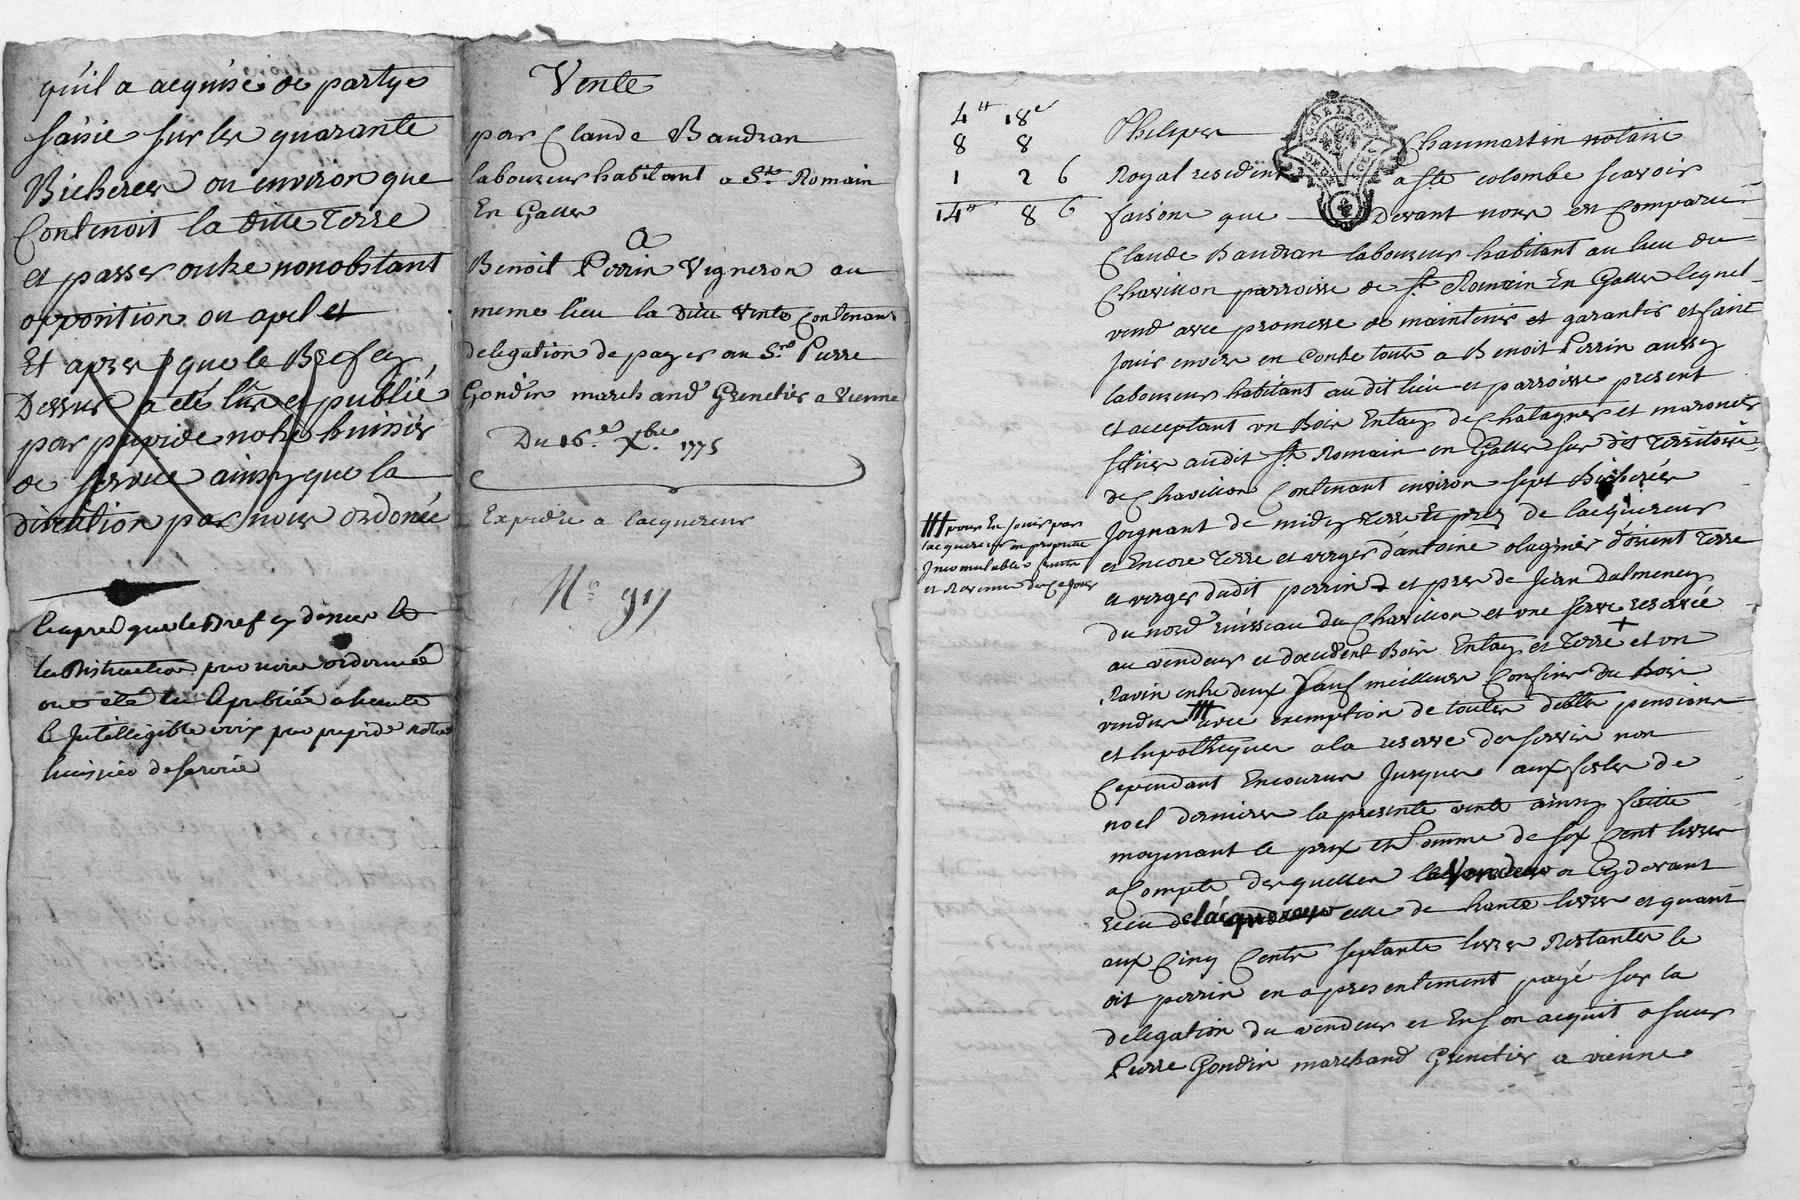 qu'il a acquise de partye
saisie sur les quarante
Bicherées ou environ que
Contenoit la ditte Terre
et passer outre nonobstant
opposition ou apel et
Et apres que le Bref cy
Dessus a été lu et publié
par pupide notre huissier
de service ainsy que la
par nous ordonée
le apres que le Bref cy dessus
par nous ordonnée
ont été lu & publiée a haute
& Intelligible voix par pupide notre
huissier de service
Vente
par Claude Baudran
laboureur habitant a St. Romain
En Galler
a
Benoit Perrin Vigneron au
meme lieu la ditte vente Contenant
delegation de payer au Sr. Pierre
Gondin marchand Grenetier a Vienne
Du 16e. Xbre. 1775
Expediée a lacquereur
No.
4tt 18s
8 8
1 2 6
14tt 8 6
Philipes Chaumartin notaire
Royal resident a ste colombe scavoir
faisons que Devant nous est Comparu
Claude Baudran laboureur habitant au lieu du
Chavillon parroisse de St. Romain En Galler lequel
vend avec promesse de maintenir et garantir et faire
Jouir envers en Contre tous a Benoit Perrin aussy
laboureur habitant au dit lieu et parroisse present
et acceptant un Bois Entay de Chatagners et maroniers
situé audit St. Romain en Galler sur dit Territoire
de Chavillon Contenant environ sept Bicherées
Joignant de midy terre et prez de lacquereur
et Encore terre et verger d'antoine olagnier d'orient terre
et verger dudit perrin et prez de Jean Dalmeney
du nord ruisseau du Chavillon et une serve reservée
au vendeur et doccident Bois Entay et terre + et un
Ravin entre deux sauf meilleurs Confins du Bois
vendu avec exemption de toutes debtes pensions
et hypotheques a la reserve des servis non
Cependant Encourus Jusques aux festes de
noel dernieres la presente vente ainsy faitte
moyenant le prix et Somme de six Cent livres
a Compte desquelles le Vendeur a Cy devant
reçu de lacquereur celle de trante livres et quant
aux Cinq Cents septante livres Restantes le
dit perrin en a presentement payé sur la
delegation du vendeur et En son acquit a sieur
Pierre Gondin marchand Grenetier a vienne
pour En Jouir par
lacquereur en propriété
Incomutable fruits
et Revenus de ce Jour